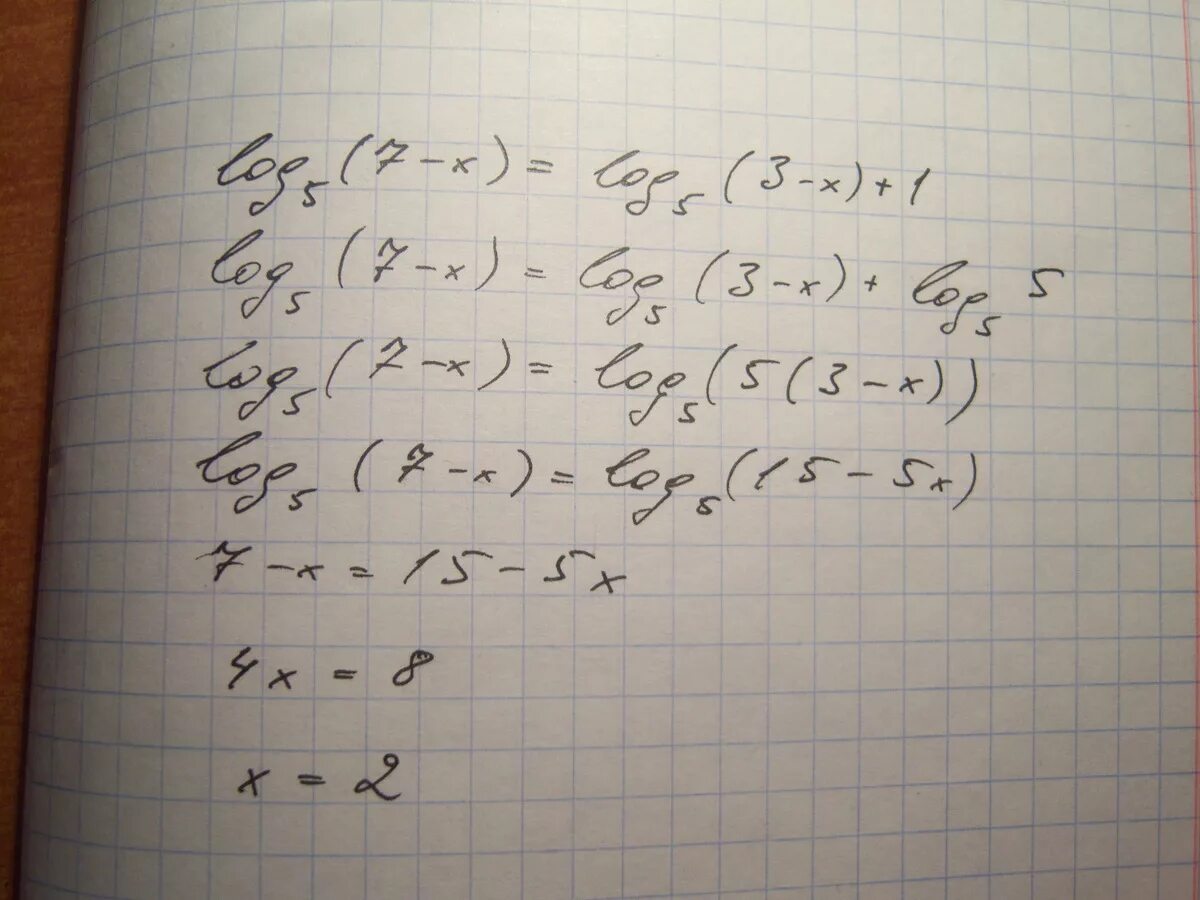 log₅(7-x) = log₅(3-x)+1
log₅(7-x) = log₅(3-x)+ log₅ 5
log₅(7-x) = log₅(5(3-x))
log₅(7-x) = log₅(15-5x)
7-x = 15-5x
4x = 8
x = 2